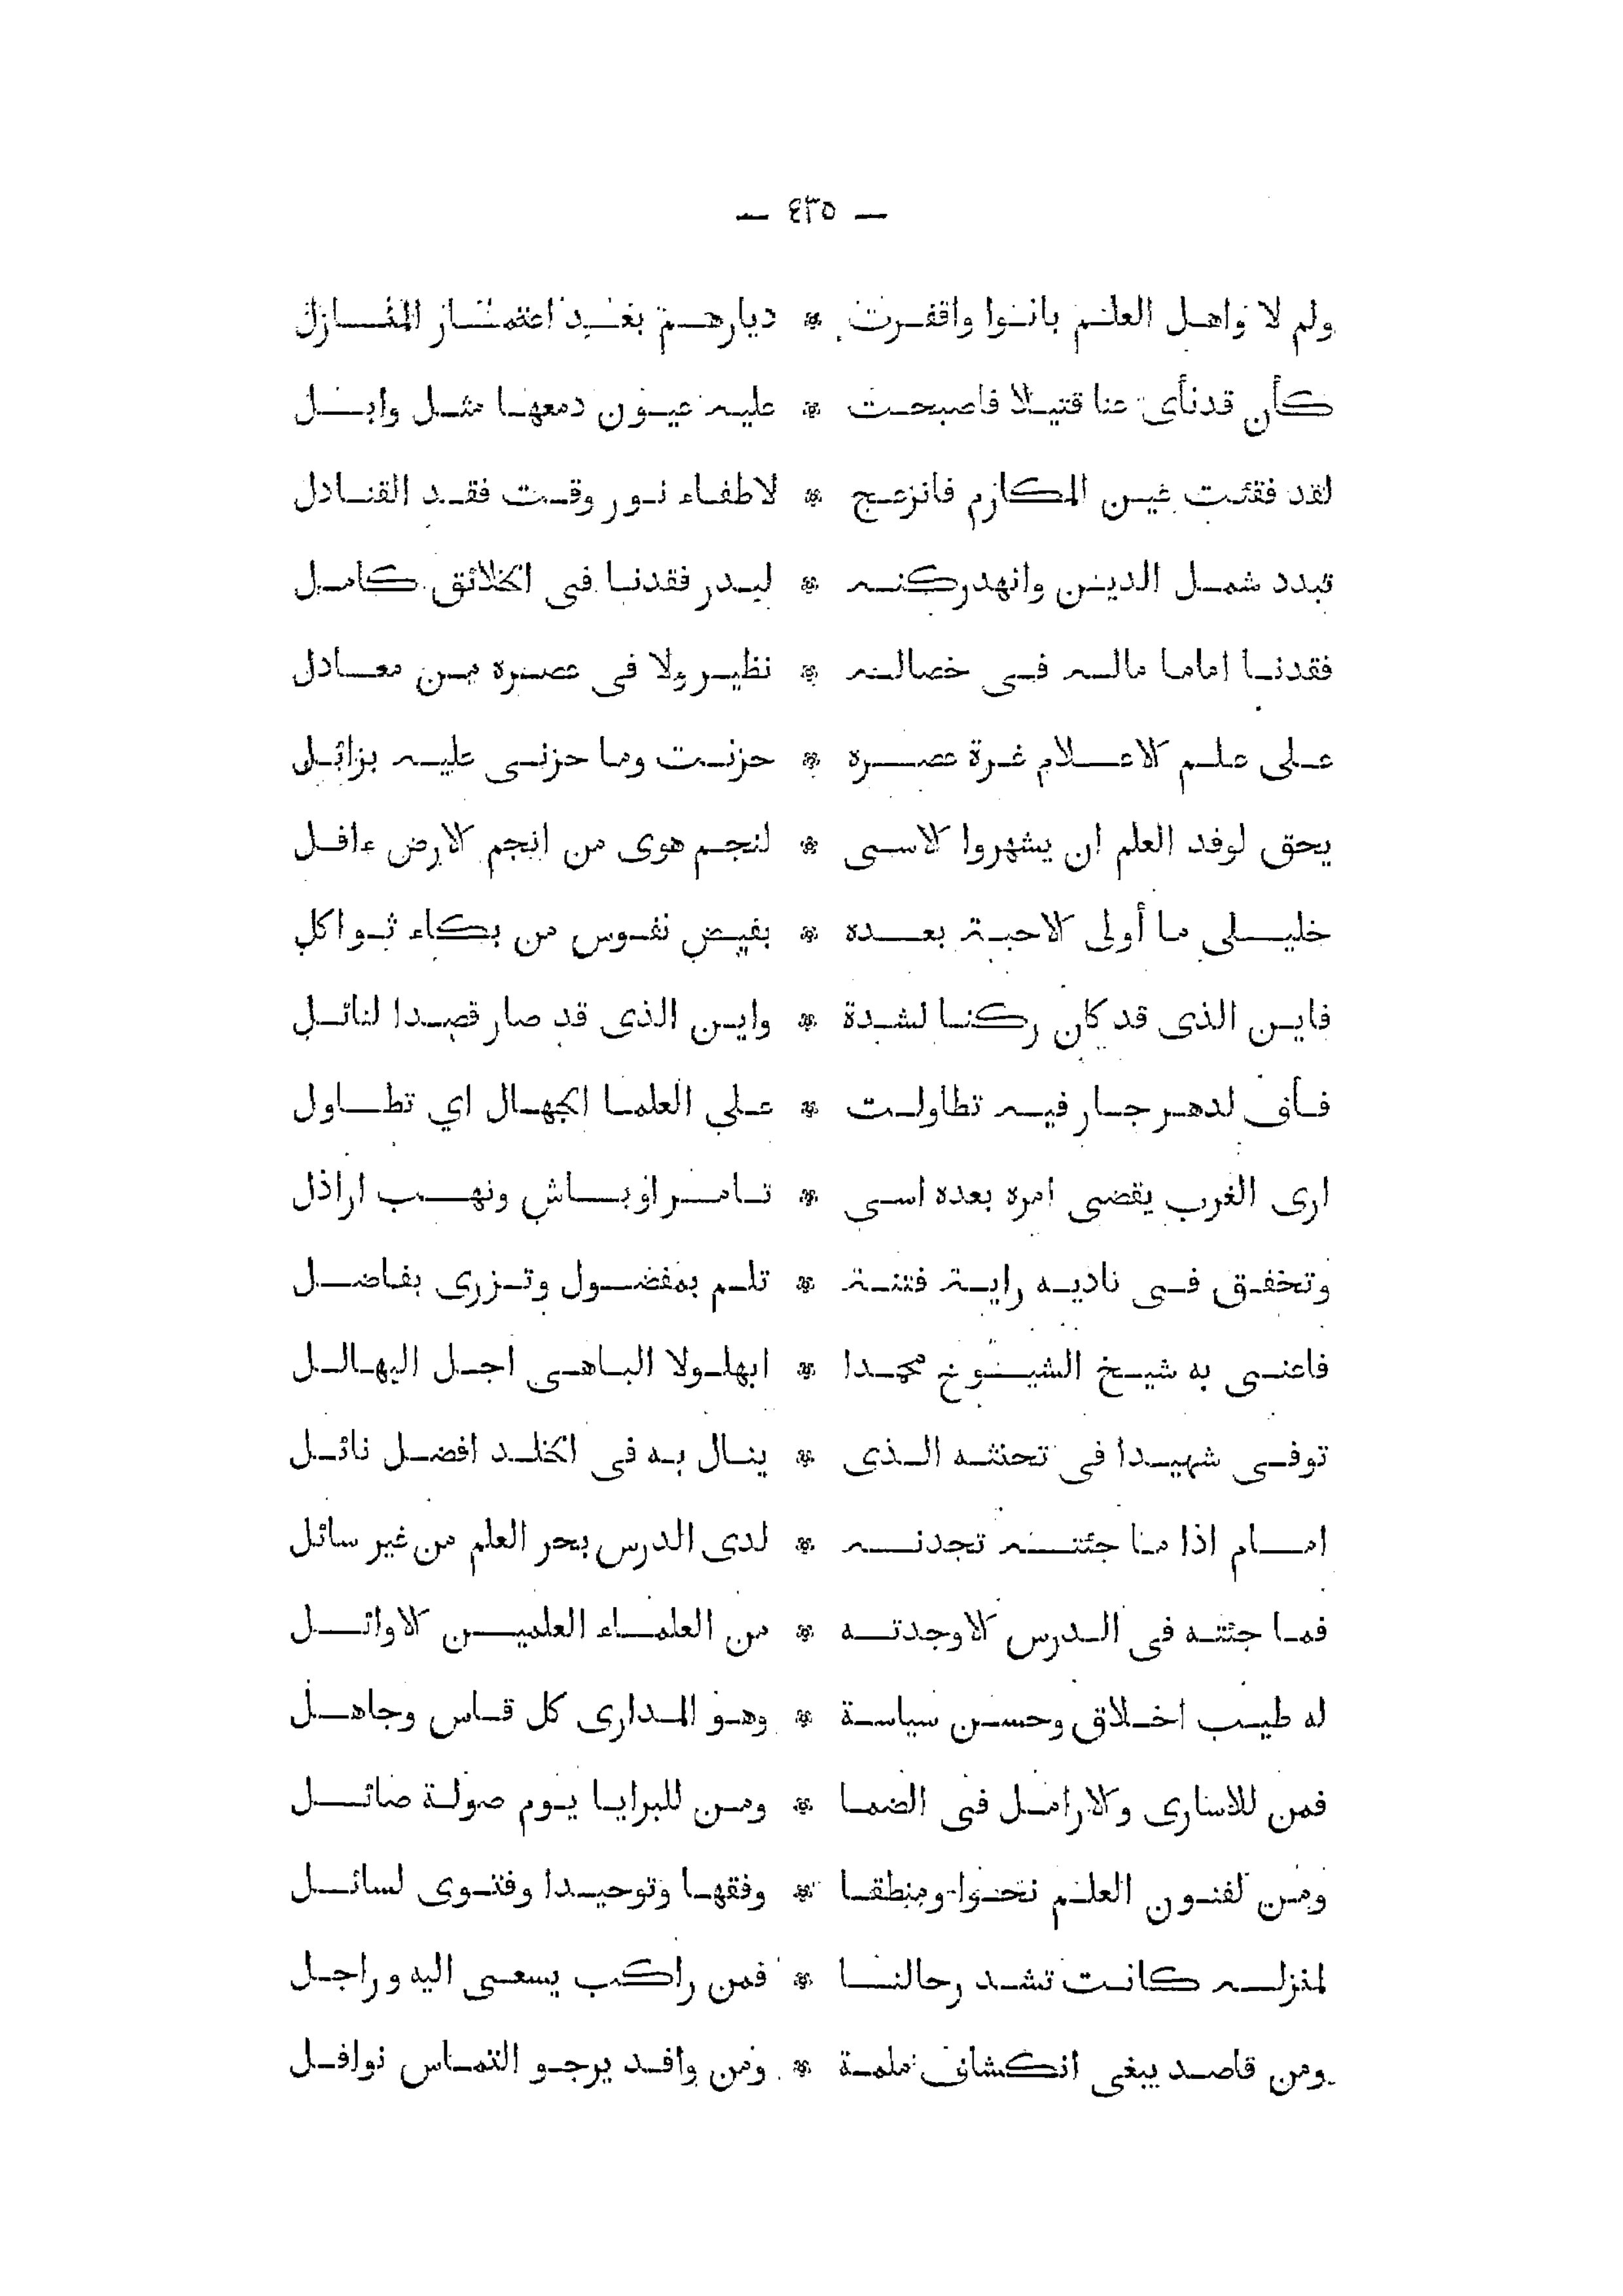 — ٤٣٥ —
ولم لا واهل العلم بانوا واقفرت * ديارهم بعد اعتمار المنازل
كأن قد نأى عنا قتيلا فاصبحت * عليه عيون دمعها مثل وابل
لقد فقئت عين المكارم فانزعج * لاطفاء نور وقت فقد القنادل
تبدد شمل الدين وانهد ركنه * لبدر فقدنا فى الخلائق كامل
فقدنا اماما ماله فى خصاله * نظير ولا فى عصره من معادل
على علم الاعلام غرة عصره * حزنت وما حزنى عليه بزائل
يحق لوفد العلم ان يشهروا الاسى * لنجم هوى من انجم الارض ءافل
خليلى ما أولى الاحبة بعده * بفيض نفوس من بكاء ثواكل
فاين الذى قد كان ركنا لشدة * واين الذى قد صار قصدا لنائل
فأف لدهر جار فيه تطاولت * على العلما الجهال اي تطاول
ارى الغرب يقضى امره بعده اسى * تامر اوباش ونهب اراذل
وتخفق فى ناديه راية فتنة * تلم بمفضول وتزرى بفاضل
فاعنى به شيخ الشيوخ محمدا * ابهلولا الباهى اجل البهالل
توفى شهيدا فى تحنثه الذى * ينال به فى الخلد افضل نائل
امام اذا ما جئته تجدنه * لدى الدرس بحر العلم من غير سائل
فما جئته فى الدرس الا وجدته * من العلماء العلميين الاوائل
له طيب اخلاق وحسن سياسة * وهو المدارى كل قاس وجاهل
فمن للاسارى والارامل فى الضما * ومن للبرايا يوم صولة صائل
ومن لفنون العلم نحوا ومنطقا * وفقها وتوحيدا وفتوى لسائل
لمنزله كانت تشد رحالنا * فمن راكب يسعى اليه وراجل
ومن قاصد يبغى انكشاف ملمة * ومن وافد يرجو التماس نوافل